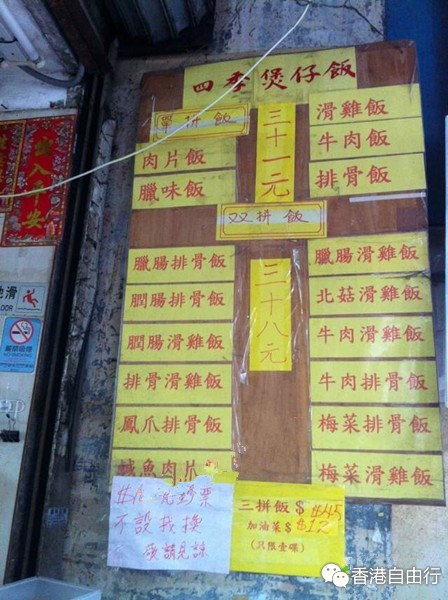 四季煲仔飯
單拼飯
三十一元
滑雞飯
肉片飯
牛肉飯
臘味飯
排骨飯
双拼飯
三十八元
臘腸排骨飯
臘腸滑雞飯
膶腸排骨飯
北菇滑雞飯
膶腸滑雞飯
牛肉滑雞飯
排骨滑雞飯
牛肉排骨飯
鳳爪排骨飯
梅菜排骨飯
鹹魚肉片飯
梅菜滑雞飯
不設找換
敬請見諒
三拼飯 $ $45
加油菜 $ $12
(只限壹碟)
入平安
地滑
香港自由行